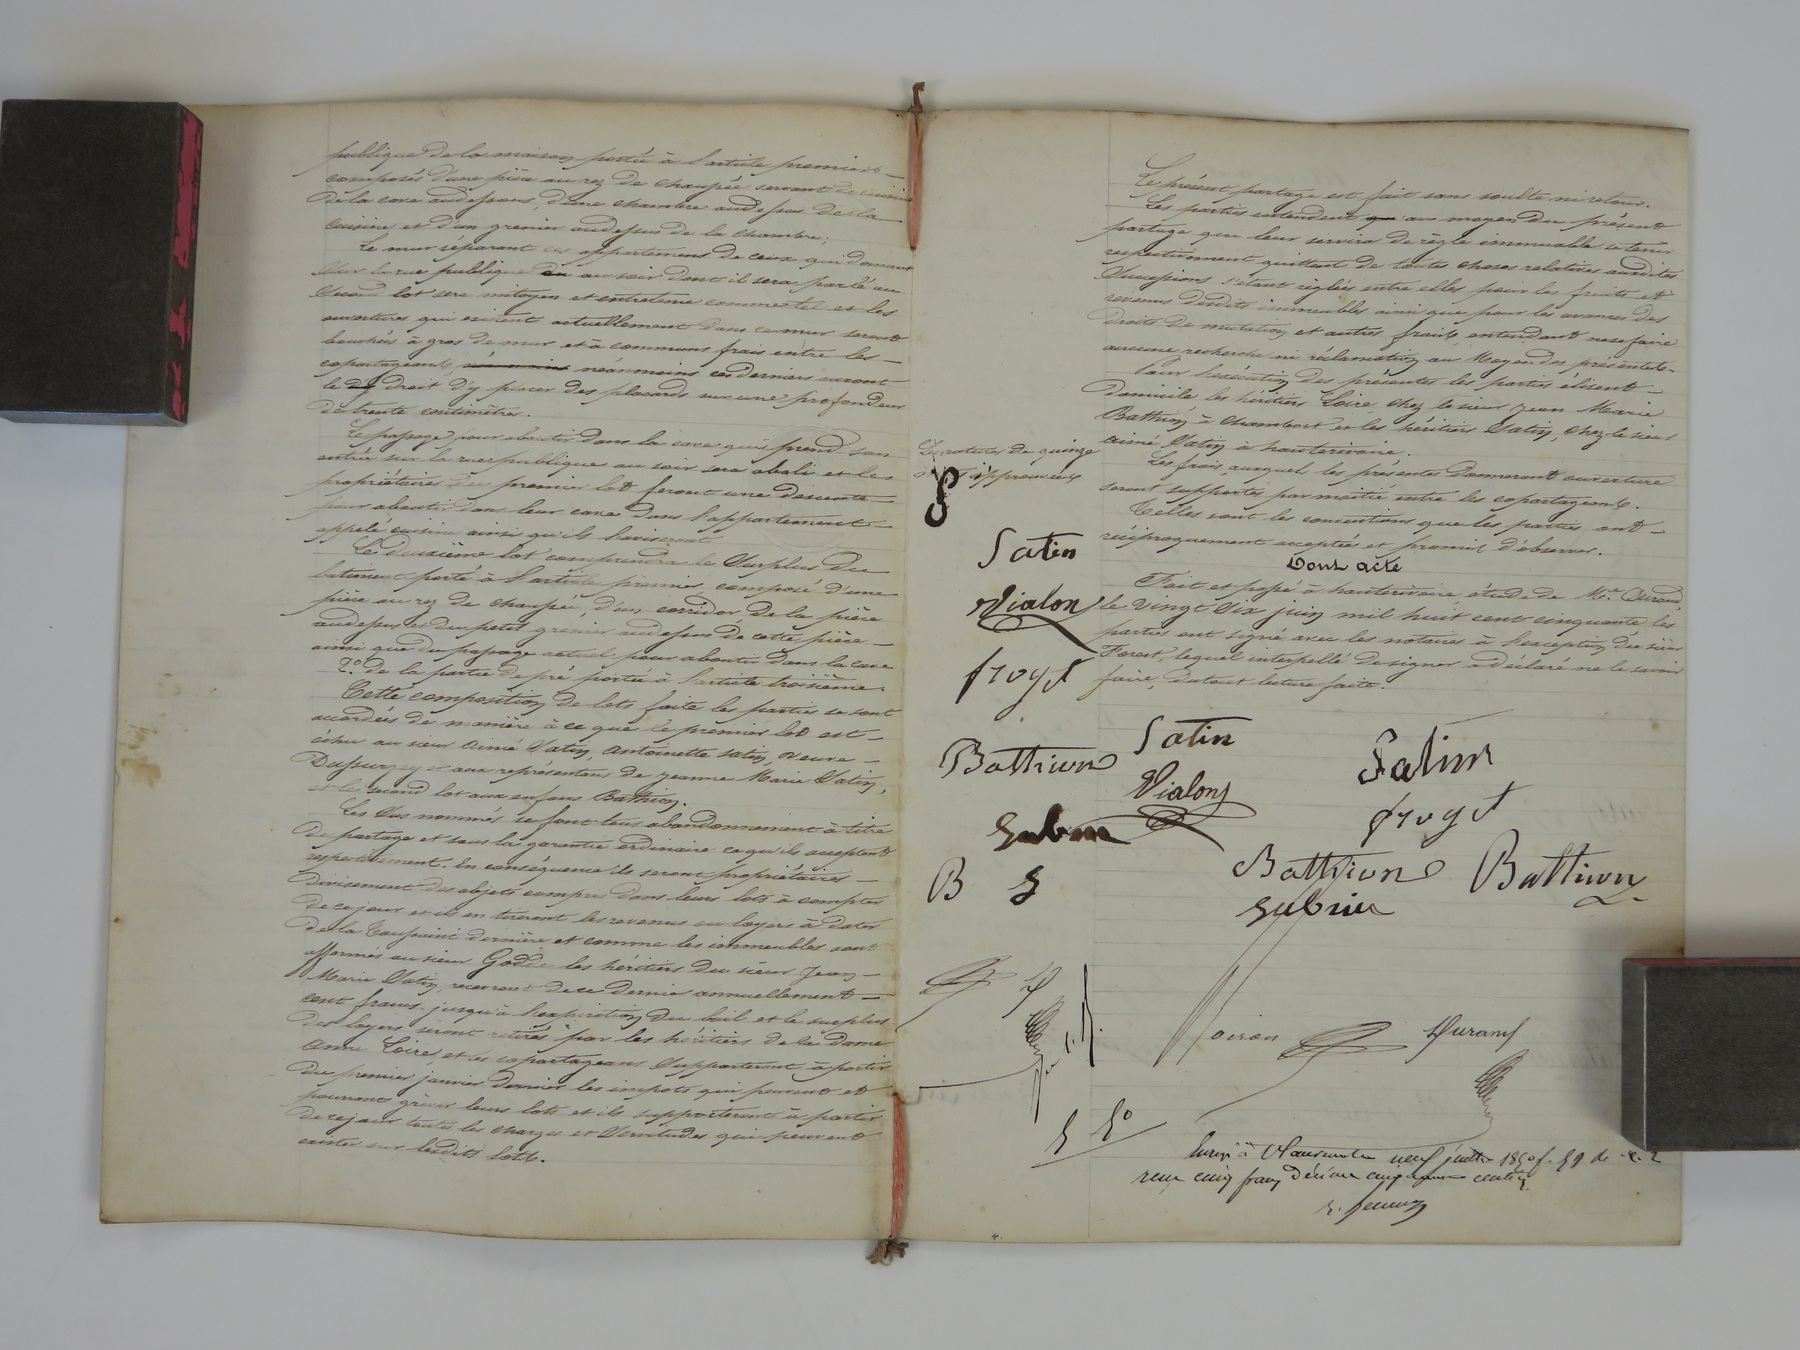 publique de la maison portée à l'article premier
composés d'une pièce au rez de chaussée servant de cuisine
de la cave audessous, d'une chambre audessus de la
cuisine et d'un grenier audessus de la chambre;
Le mur séparant ces appartemens de ceux qui donnent
sur la rue publique au soir dont il sera parlé au
second lot sera mitoyen et entretenu comme tel et les
ouvertures qui existent actuellement dans ce mur seront
bouchées à gros de mur et à communs frais entre les
copartageants, néanmoins ces derniers auront
le droit d'y placer des placards sur une profondeur
de trente centimètres.
Le passage pour aboutir dans la cave qui prend son
entrée sur la rue publique au soir sera aboli et les
propriétaires du premier lot feront une descente
pour aboutir dans leur cave dans l'appartement
appelé cuisine ainsi qu'ils l'aviseront
Le deuxième lot comprendra le surplus du
batiment porté à l'article premier composé d'une
pièce au rez de chaussée, d'un corridor de la pièce
audessus et du petit grenier audessus de cette pièce
ainsi que du passage actuel pour aboutir dans la cave
2º De la partie de pré portée à l'article troisième.
Cette composition de lots faite les parties se sont
accordées de manière à ce que le premier lot est
échu au sieur Aimé Satin, Antoinette Satin, veuve
Dussurgey et aux représentans de Jeanne Marie Satin,
et le second lot aux enfans Bathion.
Les sus nommés se font tous abandonnement à titre
de partage et sous la garantie ordinaire ce qu'ils acceptent
respectivement. En conséquence ils seront propriétaires
divisement des objets compris dans leurs lots à compter
de ce jour et ils en tireront les revenus ou loyers à dater
de la Toussaint dernière et comme les immeubles sont
affermés au sieur les héritiers du sieur Jean
Marie Satin, recevront de ce dernier annuellement
cent francs jusqu'à l'expiration du bail et le surplus
des loyers seront retirés par les héritiers de la dame
Anne Loire et les copartageans supporteront, à partir
du premier janvier dernier les impots qui peuvent et
pourront grèver leurs lots et ils supporteront à partir
de ce jour toutes les charges et servitudes qui peuvent
exister sur lesdits lots.
Le présent partage est fait sans soulte ni retour.
Les parties entendent que au moyen du présent
partage que leur servira de règle immuable se tenir
respectivement quittent de toutes choses relatives auxdites
successions s'étant réglées entre elles pour les fruits et
revenus desdits immeubles ainsi que pour les avances des
droits de mutation et autres frais, entendant ne se faire
aucune recherche ni réclamation au moyen des présentes.
Pour l'exécution des présentes les parties élisent
domicile les héritiers Loire chez le sieur Jean Marie
Bathion à Chambost et les héritiers Satin, chez le sieur
aimé Satin à hauterivoire.
Les frais auxquels les présentes donneront ouverture
seront supportés par moitié entre les copartageants.
Telles sont les conventions que les parties ont
réciproquement acceptées et promis d'observer.
Dont acte
Fait et passé à hauterivoire étude de Me Durand
le vingt six juin mil huit cent cinquante les
parties ont signé avec les notaires à l'exception du sieur
Forest, lequel interpellé de signer a déclaré ne le savoir
faire, du tout lecture faite.
de quinze
approuvées
Satin
Vialon
froget
Bathion
Subrin
B S
Satin
Satin
Vialon
froget
Bathion
Bathion
Subrin
Noiron
Durand
neuf juillet 1850 f. 59
reçu cinq francs décime cinquante centimes